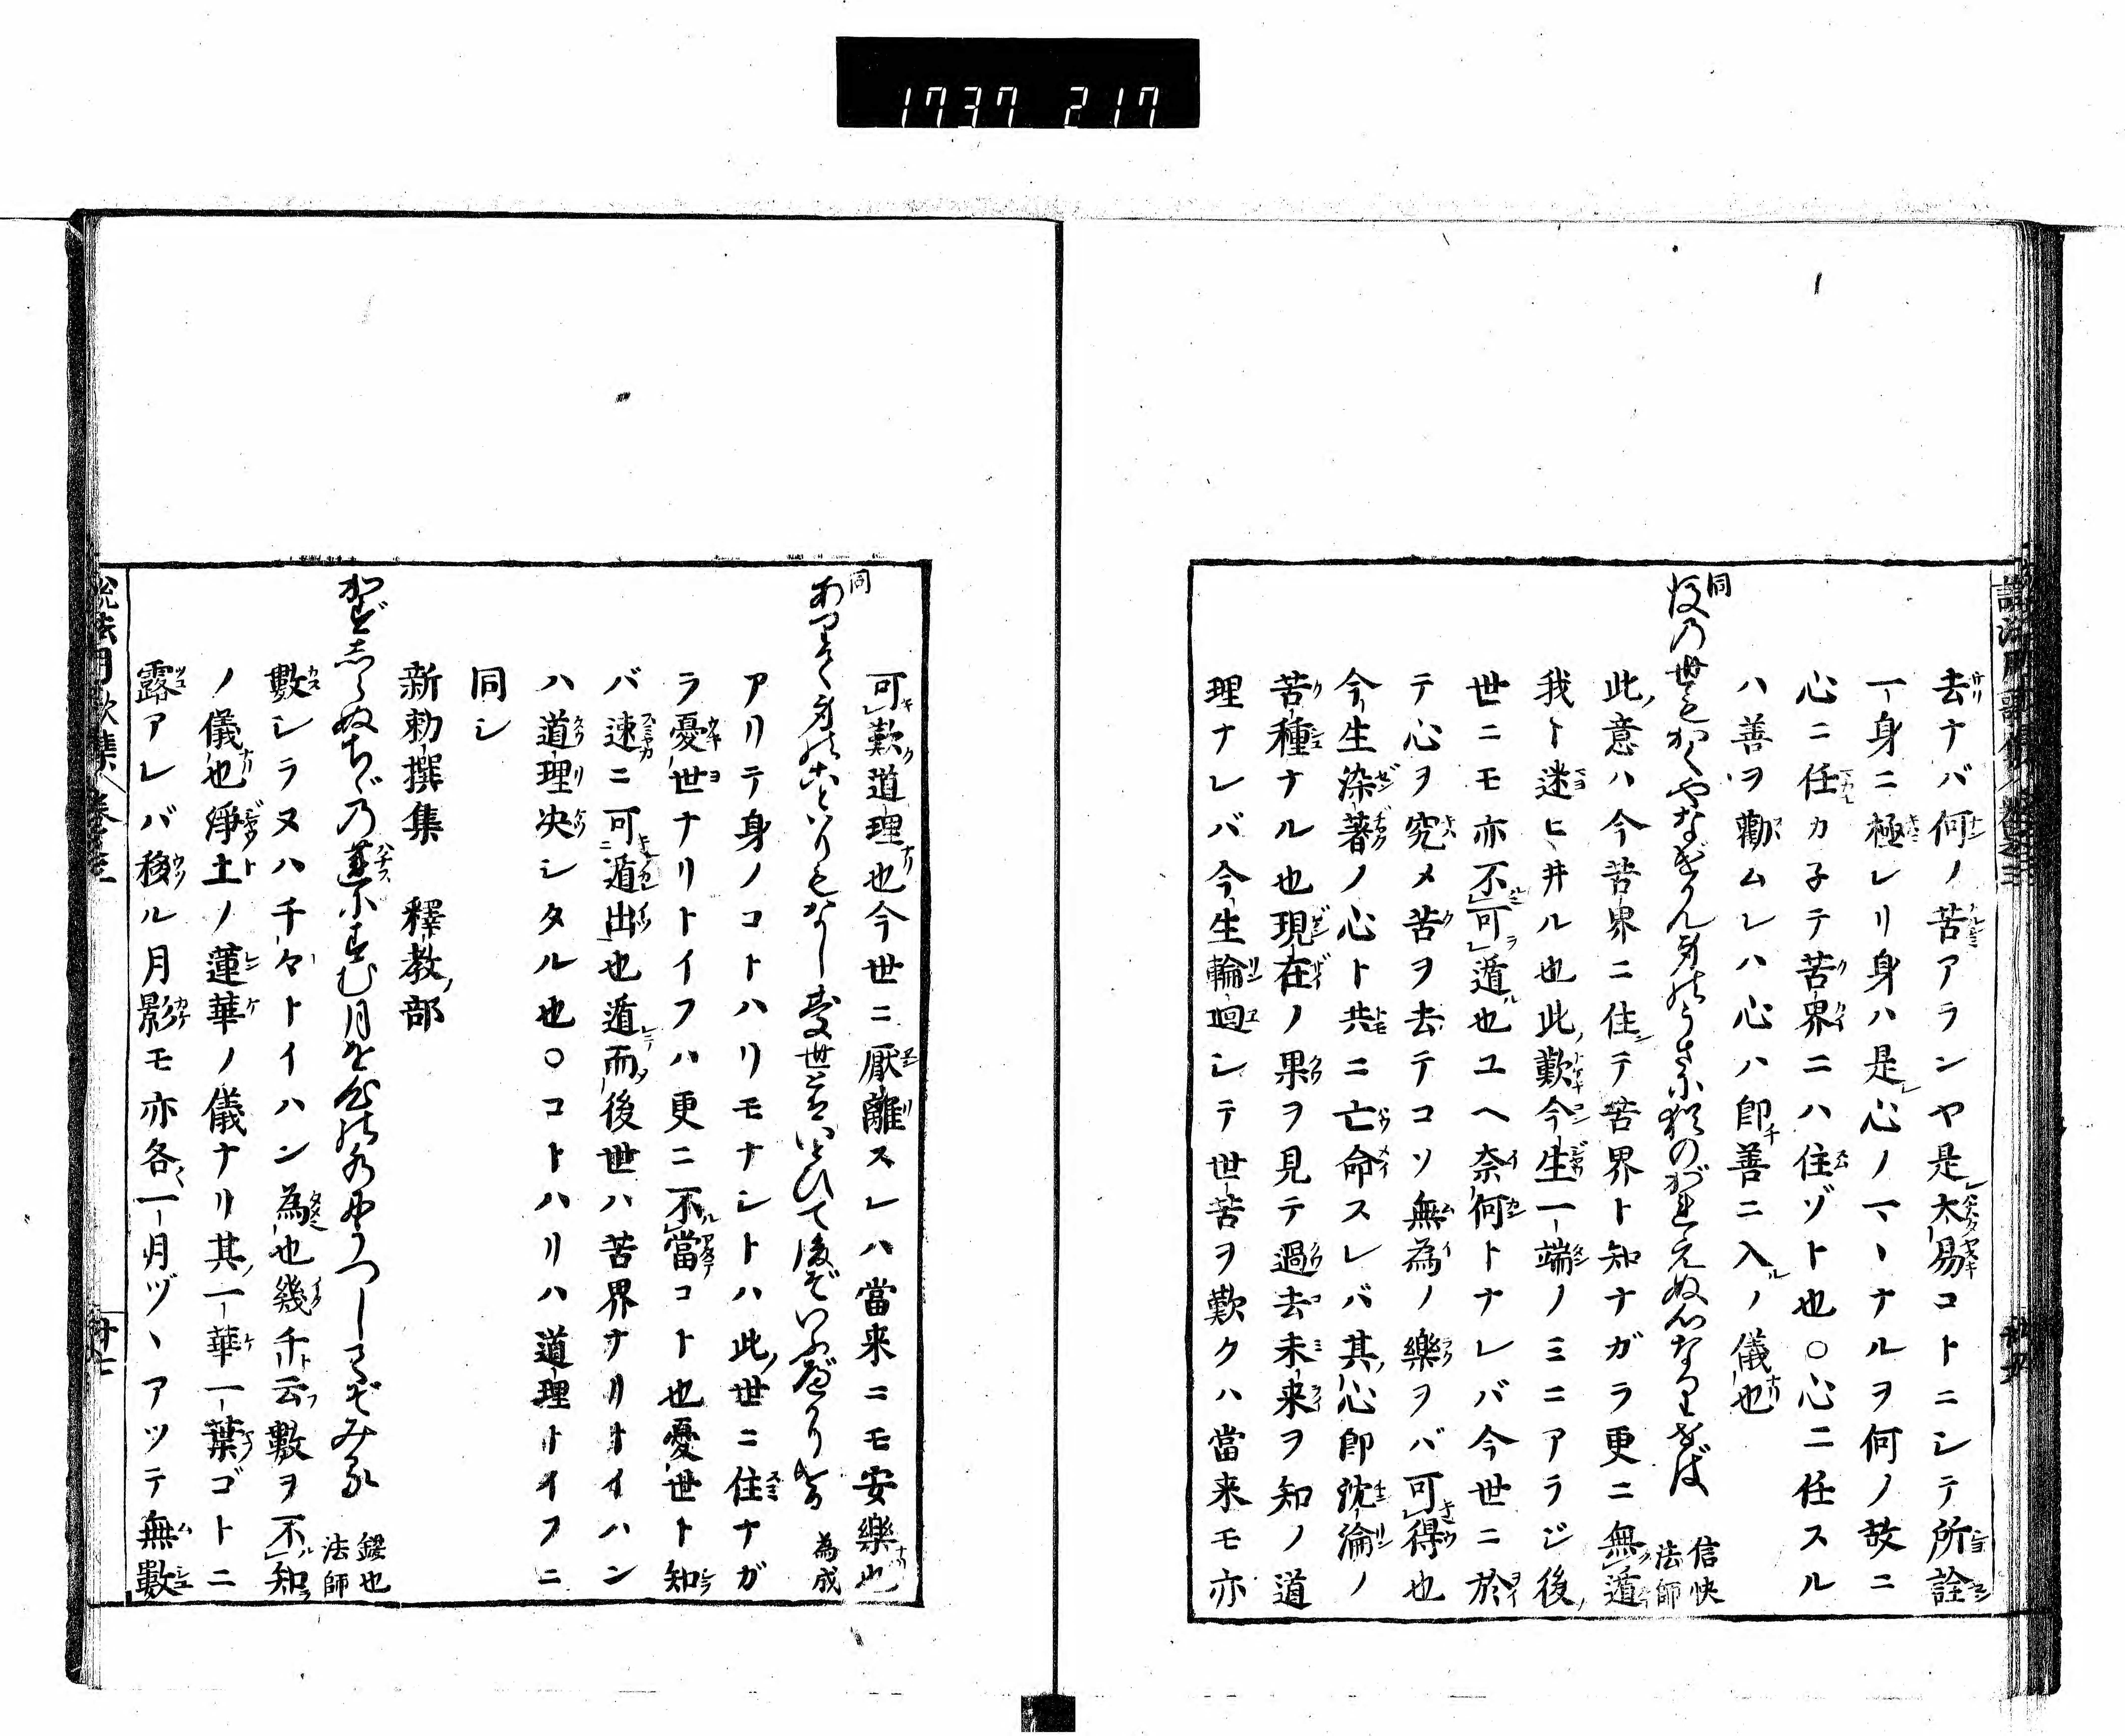 1737 217
去ナバ何ノ苦アランヤ是大易コトニシテ所詮
一身ニ極レリ身ハ是心ノマヽナルヲ何ノ故ニ
心ニ任カ子テ苦界ニハ住ゾト也○心ニ任スル
ハ善ヲ勸ムレハ心ハ即善ニ入ノ儀也
同
後乃世もかくやなげかん身のうさに猶のがれえぬ心なりせば 信快法師
此意ハ今苦界ニ住テ苦界ト知ナガラ更ニ無遁
我ト迷ヒ井ル也此歎今生一端ノミニアラジ後
世ニモ亦不可遁也ユヘ奈何トナレバ今世ニ於
テ心ヲ究メ苦ヲ去テコソ無為ノ樂ヲバ可得也
今生染著ノ心ト共ニ亡命スレバ其心即沈淪ノ
苦種ナル也現在ノ果ヲ見テ過去未来ヲ知ノ道
理ナレバ今生輪迴シテ世苦ヲ歎クハ當来モ亦
可歎道理也今世ニ厭離スレハ當来ニモ安樂也
同
為成
アリテ身ノコトハリモナシトハ此世ニ住ナガ
ラ憂世ナリトイフハ更ニ不當コト也憂世ト知
バ速ニ可遁出也遁而後世ハ苦界ナリトイハン
ハ道理決シタル也○コトハリハ道理トイフニ
同シ
新勅撰集 釋教部
かずしらぬちゞ乃蓮にすむ月を心の水にうつしてぞみる 鑁也法師
數シラヌハ千々トイハン為也幾千ト云數ヲ不知
ノ儀也淨土ノ蓮華ノ儀ナリ其一華一葉ゴトニ
露アレバ移ル月影モ亦各一月ヅヽアツテ無數
廿七